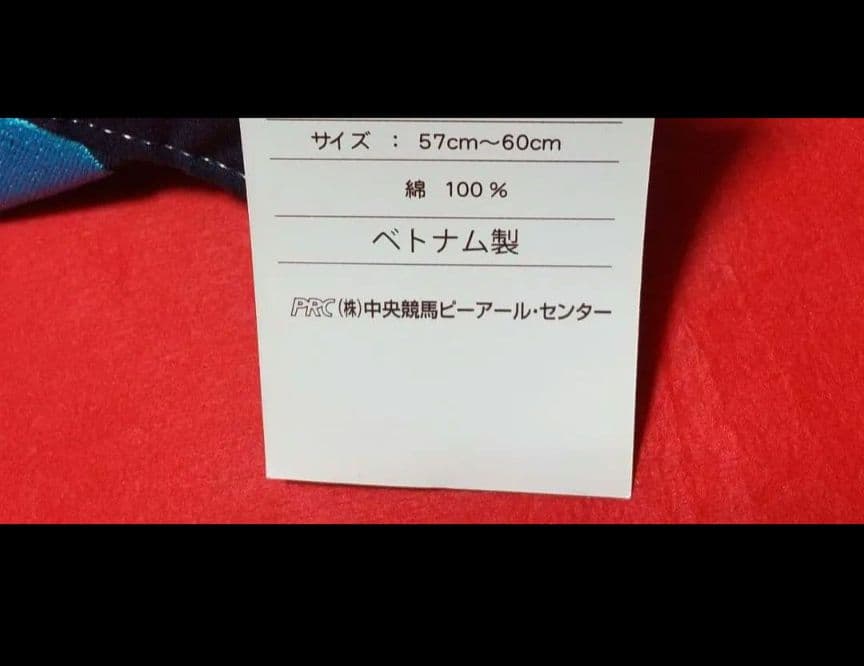 サイズ : 57cm〜60cm
綿 100%
ベトナム製
PRC (株)中央競馬ピーアール・センター